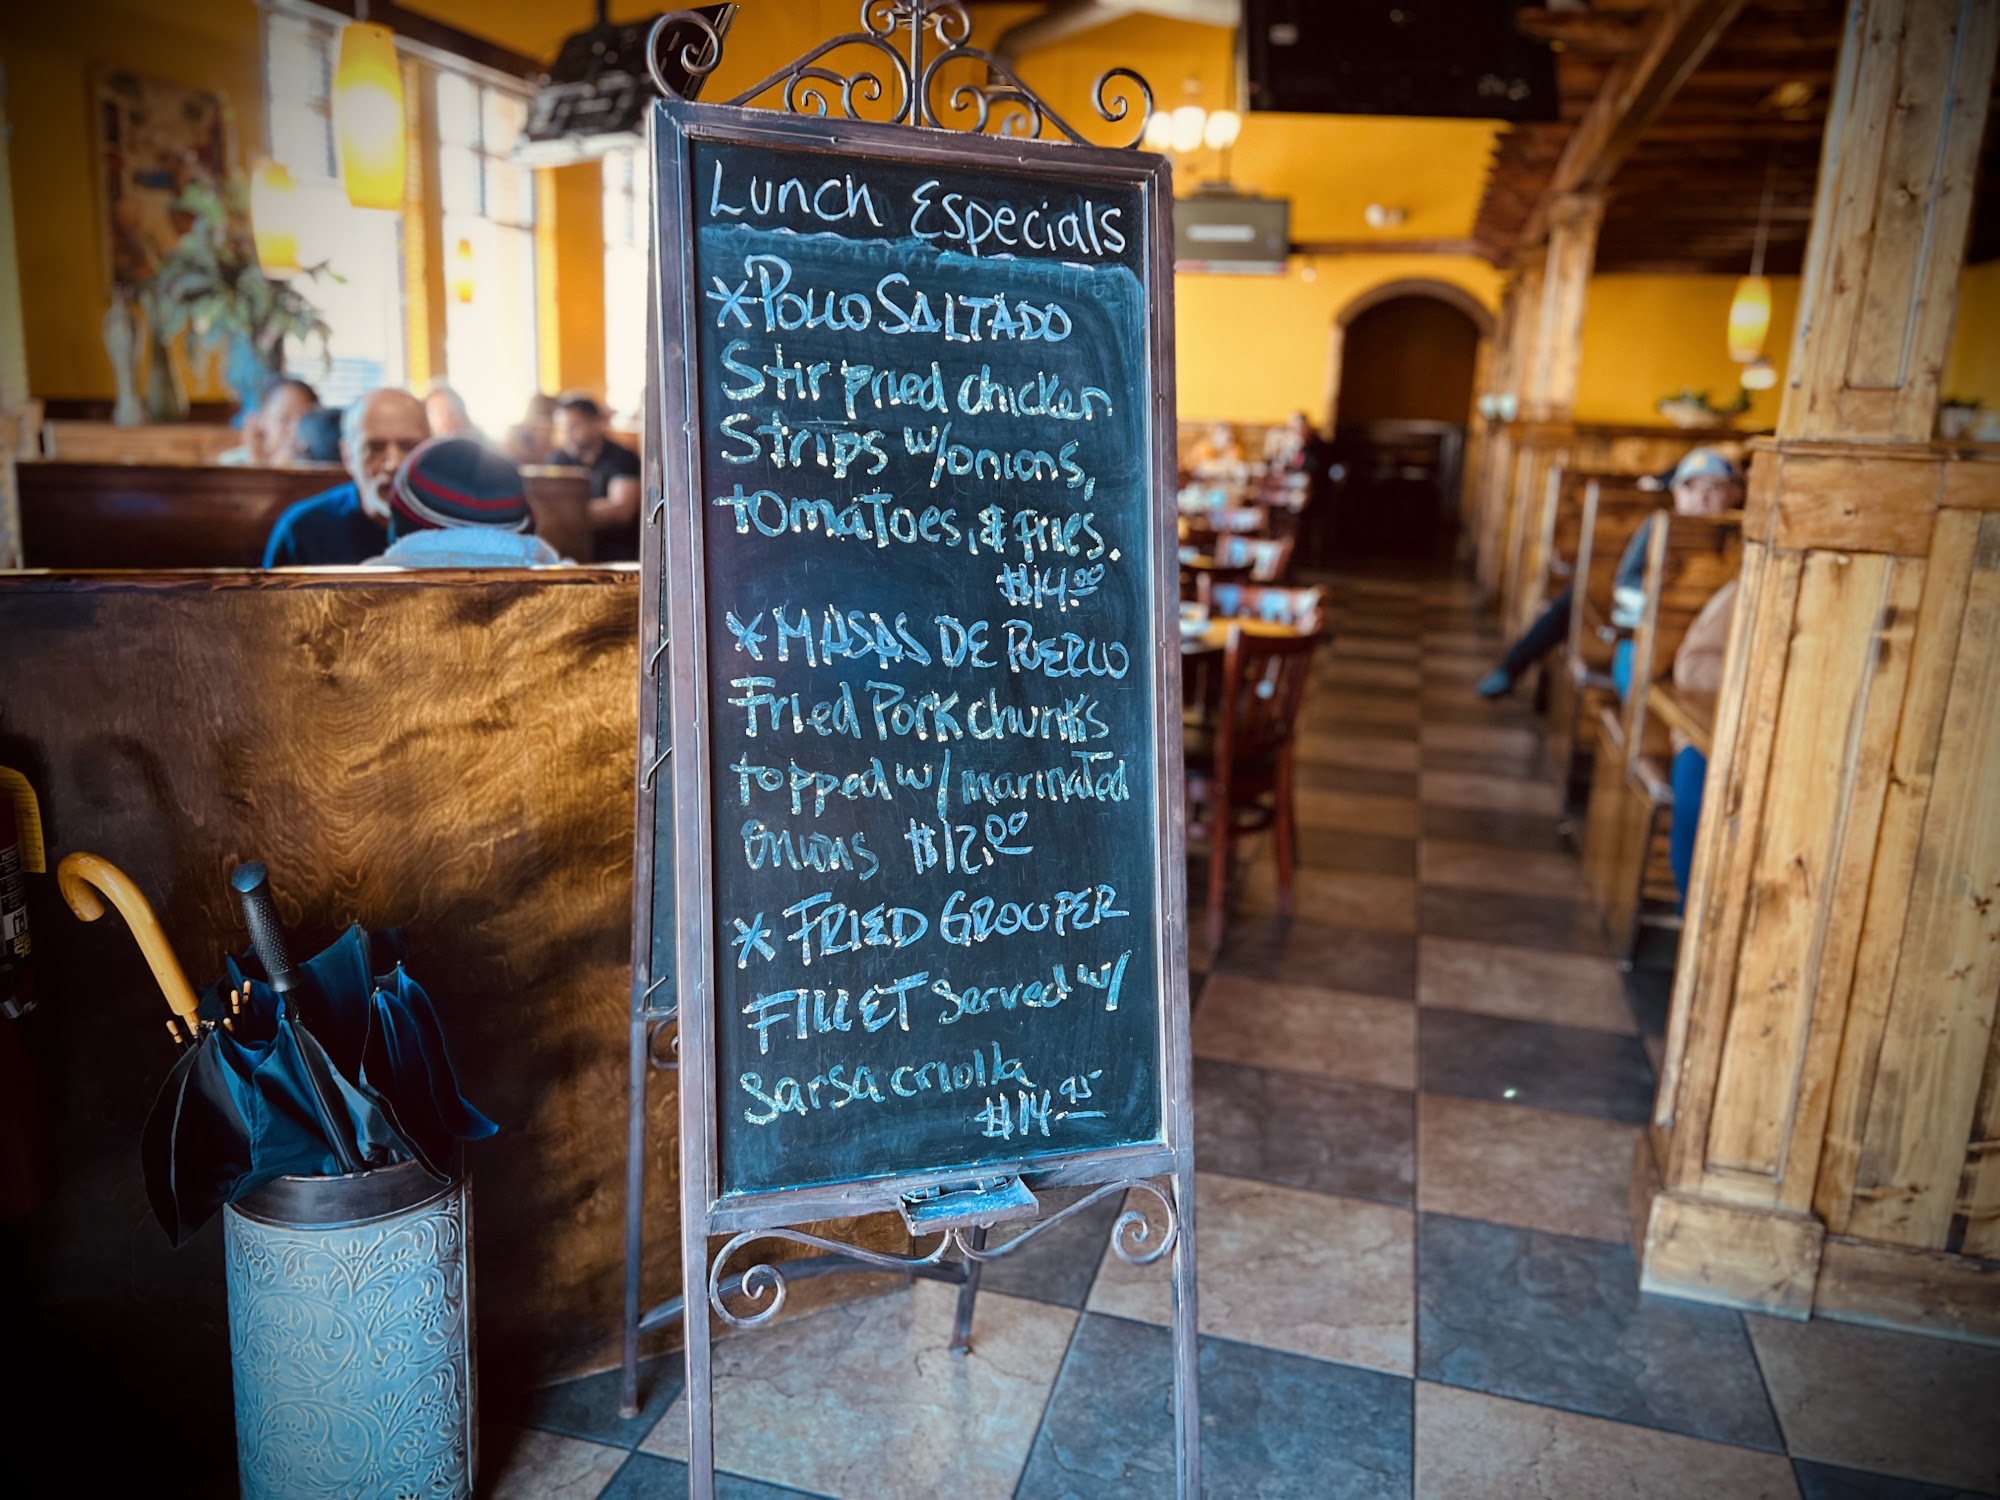 Lunch Especials
*POLLO SALTADO
Stir fried chicken
Strips w/onions,
tomatoes, & fries.
$14.00
*MASAS DE PUERCO
Fried Pork chunks
topped w/ marinated
onions $12.00
* FRIED GROUPER
FILLET served w/
sarsa criolla
$14.95